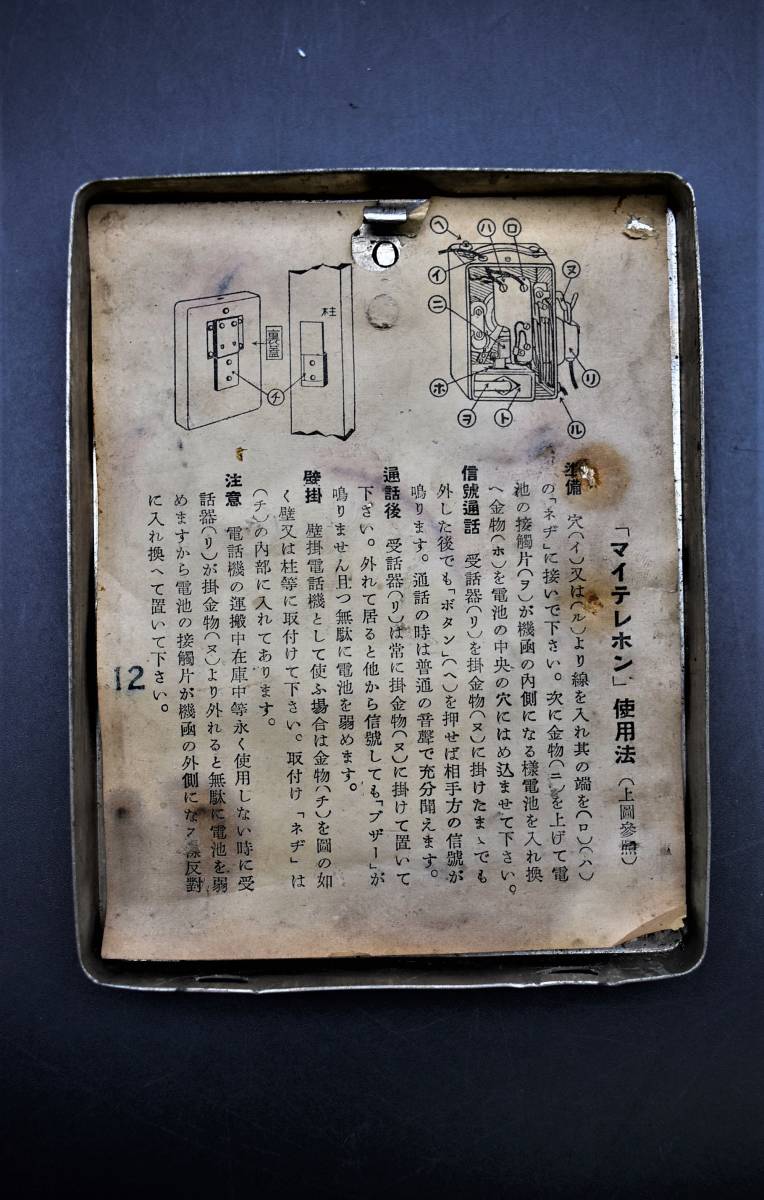 「マイテレホン」使用法（上圖參照）
準備　穴（イ）又は（ル）より線を入れ其の端を（ロ）（ハ）
の「ネヂ」に接いで下さい。次に金物（ニ）を上げて電
池の接觸片（ヲ）が機函の内側になる樣電池を入れ換
へ金物（ホ）を電池の中央の穴にはめ込ませて下さい。
信號通話　受話器（リ）を掛金物（ヌ）に掛けたまゝでも
外した後でも「ボタン」（ヘ）を押せば相手方の信號が
鳴ります。通話の時は普通の音聲で充分聞えます。
通話後　受話器（リ）は常に掛金物（ヌ）に掛けて置いて
下さい。外れて居ると他から信號しても「ブザー」が
鳴りません且つ無駄に電池を弱めます。
壁掛　壁掛電話機として使ふ場合は金物（チ）を圖の如
く壁又は柱等に取付けて下さい。取付け「ネヂ」は
（チ）の内部に入れてあります。
注意　電話機の運搬中在庫中等永く使用しない時に受
話器（リ）が掛金物（ヌ）より外れると無駄に電池を弱
めますから電池の接觸片が機函の外側にな反對
に入れ換へて置いて下さい。
12
ヘ
ハ
ロ
イ
ヌ
ニ
ホ
ヲ
ト
リ
ル
柱
裏蓋
チ